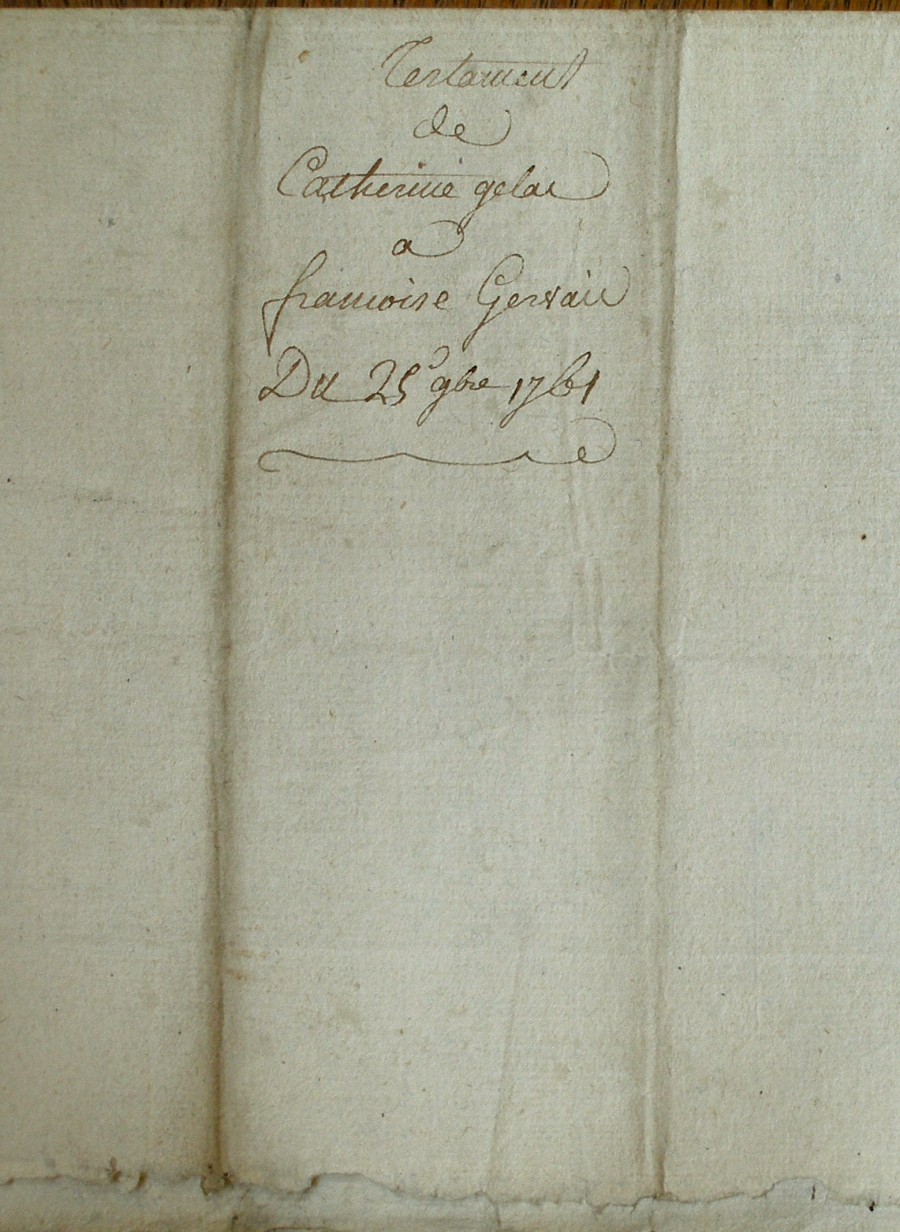 Testament
de
Catherine gelas
a
francoise Gervais
Du 25e 9bre 1761